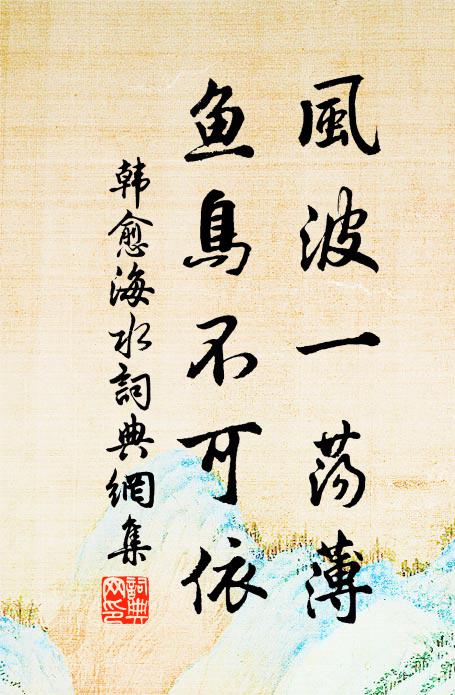 風波一荡薄
鱼鳥不可依
韩愈海水詞典網集
詞典网印